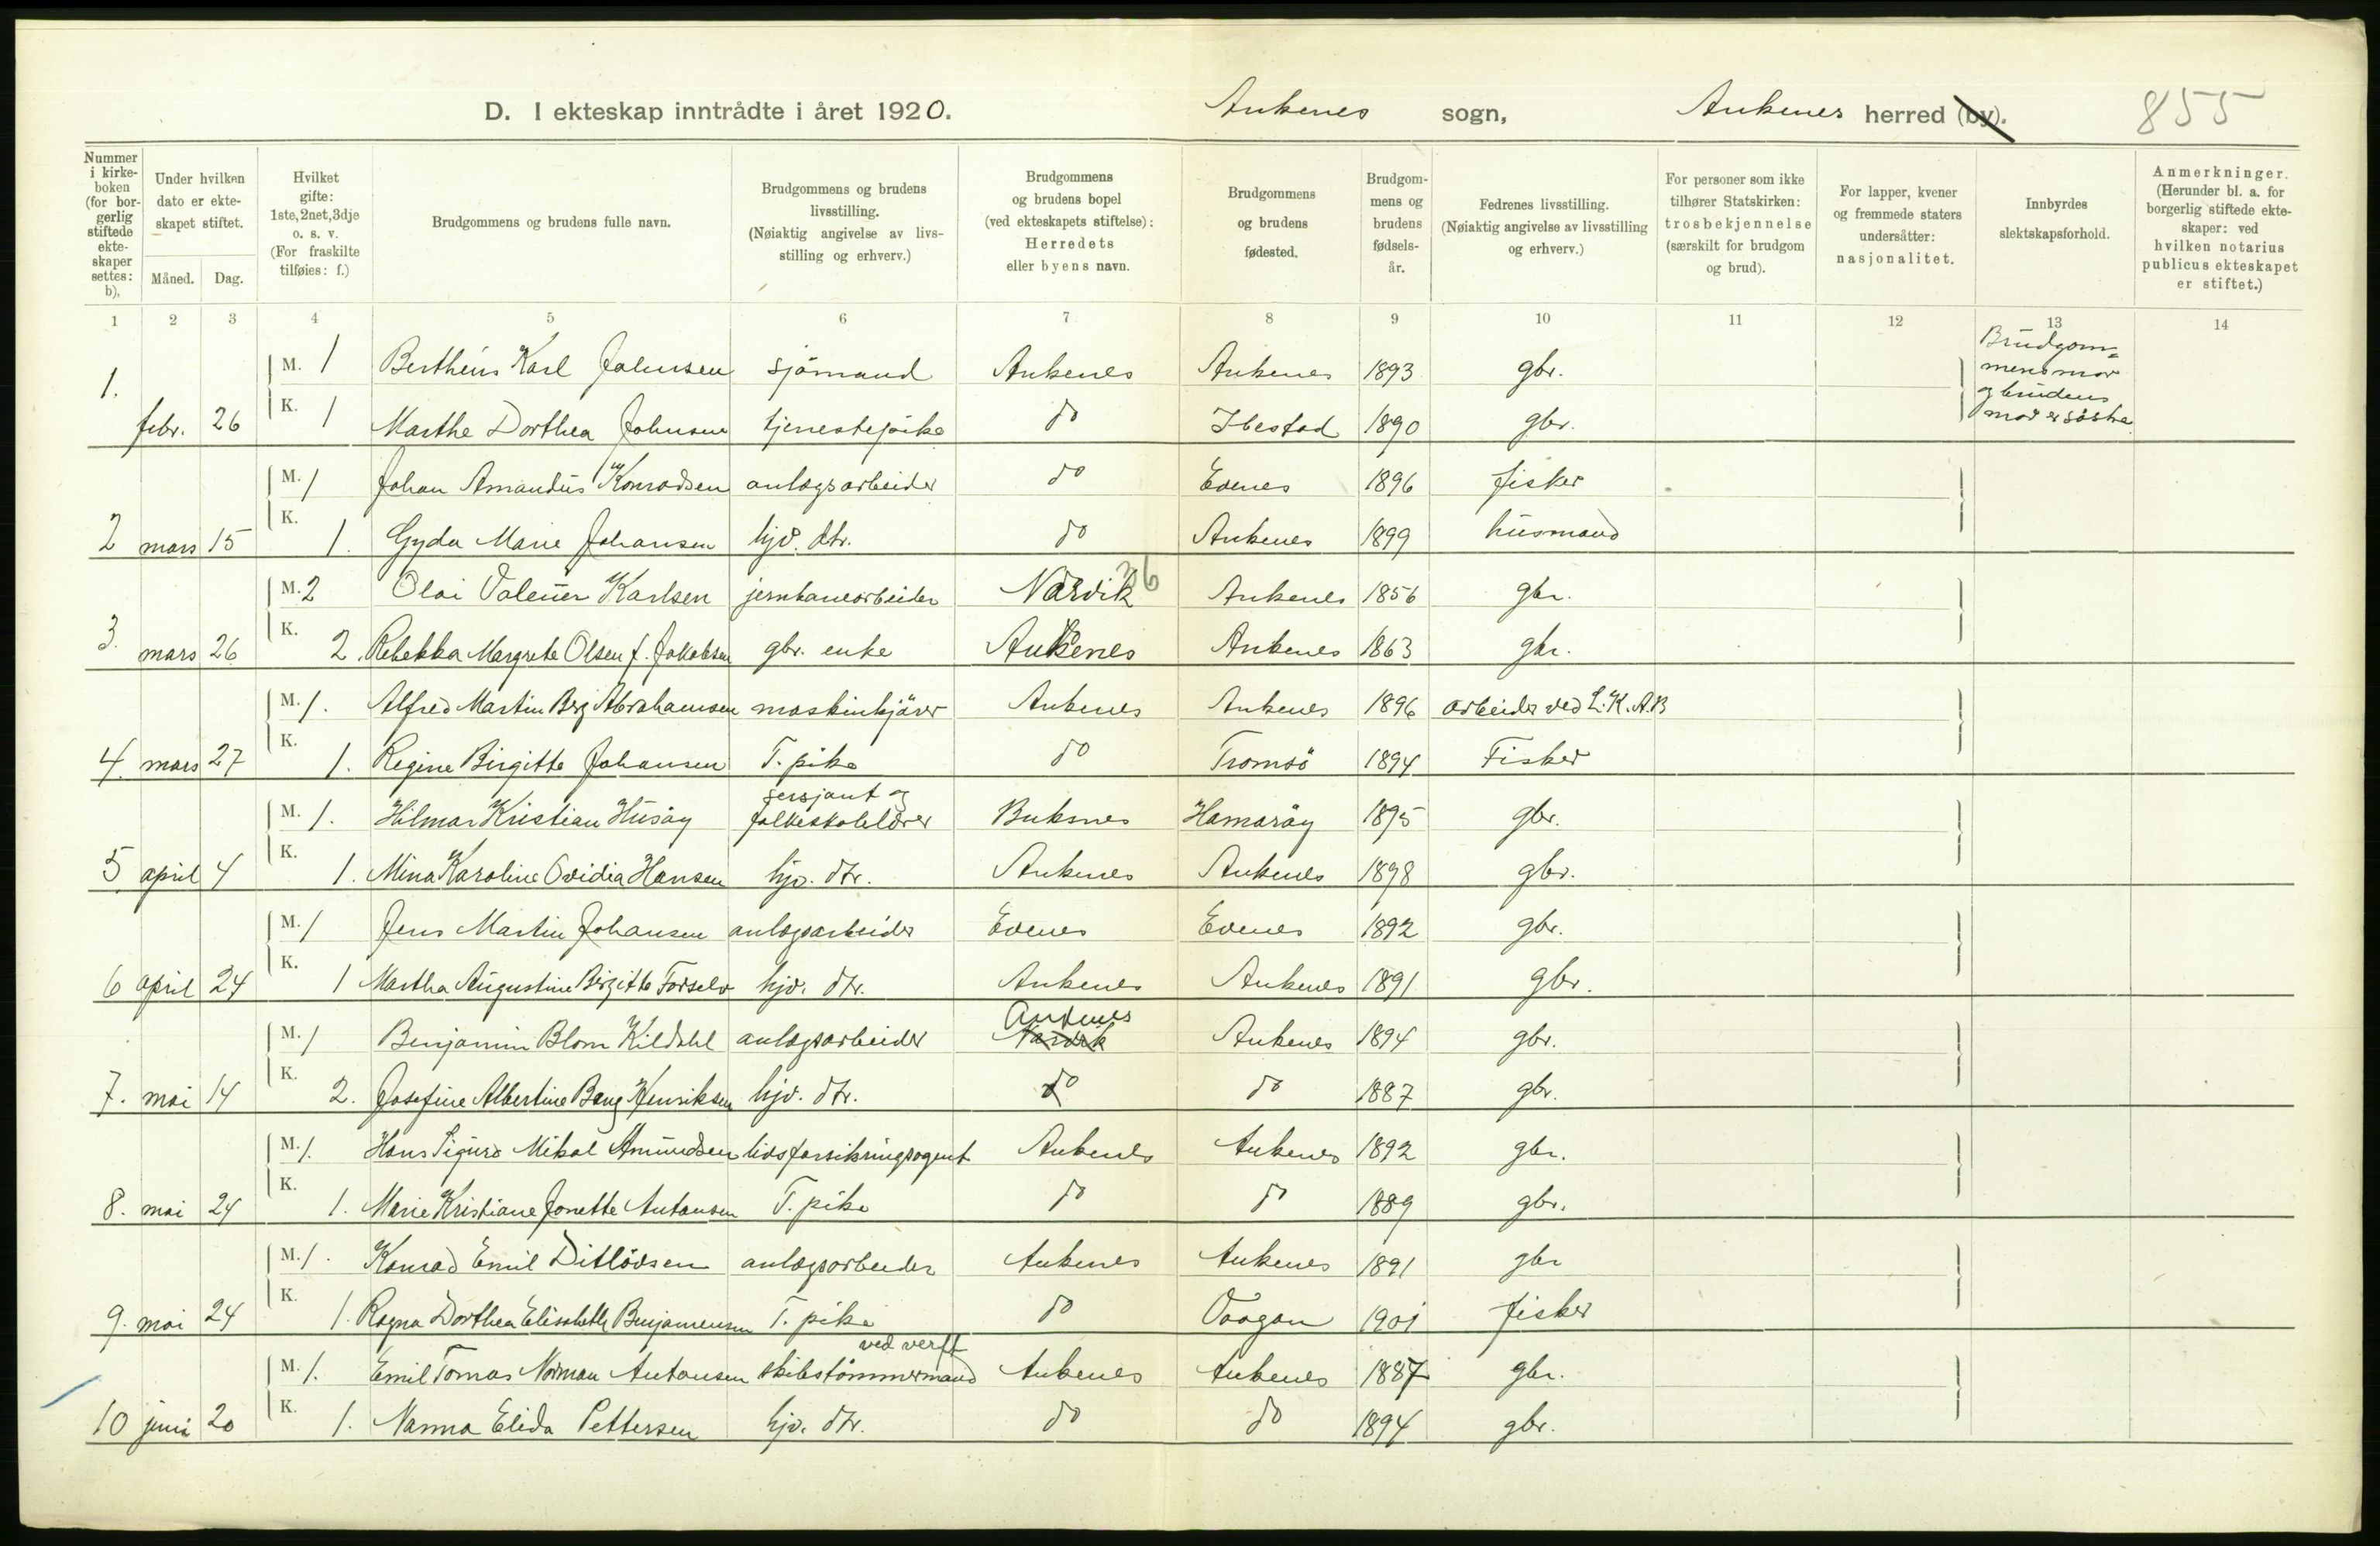 D. I ekteskap inntrådte i året 1920. Ankenes sogn, Ankenes herred (by). 855
Nummer i kirkeboken (for borgerlig stiftede ekteskaper settes: b).
Under hvilken dato er ekteskapet stiftet.
Måned. Dag.
Hvilket gifte: 1ste, 2net, 3dje o. s. v. (For fraskilte tilføies: f.)
Brudgommens og brudens fulle navn.
Brudgommens og brudens livsstilling. (Nøiaktig angivelse av livsstilling og erhverv.)
Brudgommens og brudens bopel (ved ekteskapets stiftelse): Herredets eller byens navn.
Brudgommens og brudens fødested.
Brudgommens og brudens fødselsår.
Fedrenes livsstilling. (Nøiaktig angivelse av livsstilling og erhverv.)
For personer som ikke tilhører Statskirken: trosbekjennelse (særskilt for brudgom og brud).
For lapper, kvener og fremmede staters undersåtter: nasjonalitet.
Innbyrdes slektskapsforhold.
Anmerkninger. (Herunder bl. a. for borgerlig stiftede ekteskaper: ved hvilken notarius publicus ekteskapet er stiftet.)
1 2 3 4 5 6 7 8 9 10 11 12 13 14
1. M. 1 Bertheus Karl Johnsen sjömand Ankenes Ankenes 1893 gbr. Brudgommens mor og brudens mor er söstre
febr. 26 K. 1 Marthe Dorthea Johnsen tjenestepike do Ibestad 1890 gbr.
M. 1 Johan Amandus Konradsen anlægsarbeider do Evenes 1896 fisker
2 mars 15 K. 1. Gyda Marie Johansen hjv. dtr. do Ankenes 1899 husmand
M. 2 Olai Valener Karlsen jernbanearbeider Narvik 36 Ankenes 1856 gbr.
3. mars 26 K. 2. Rebekka Margrete Olsen f. Jakobsen gbr. enke Ankenes Ankenes 1863 gbr.
M. 1. Alfred Martin Berg Abrahamsen maskinkjörer Ankenes Ankenes 1896 arbeider ved L.K.A.B
4. mars 27 K. 1. Regine Birgitte Johansen T. pike do Tromsö 1894 Fisker
M. 1. Hilmar Kristian Husöy sersjant og folkeskolelærer Buksnes Hamaröy 1895 gbr.
5 april 4 K. 1. Mina Karoline Ovidia Hansen hjv. dtr. Ankenes Ankenes 1898 gbr.
M. 1 Jens Martin Johansen anlægsarbeider Evenes Evenes 1892 gbr.
6 april 24 K. 1 Martha Augustine Birgitte Forselv hjv. dtr. Ankenes Ankenes 1891 gbr.
M. 1 Benjamin Blom Kildahl anlægsarbeider Narvik Ankenes Ankenes 1894 gbr.
7. mai 14 K. 2. Josefine Albertine Bang Henriksen hjv. dtr. do do 1887 gbr.
M. 1. Hans Sigurd Mikal Amundsen livsforsikringsagent Ankenes Ankenes 1892 gbr.
8. mai 24 K. 1. Marie Kristiane Jonette Antonsen T. pike do do 1889 gbr.
M. 1. Konrad Emil Ditlövsen anlægsarbeider Ankenes Ankenes 1891 gbr
9. mai 24 K. 1. Ragna Dorthea Elisabeth Benjaminsen T. pike do Vaagan 1901 fisker
M. 1. Emil Tomas Norman Antonsen skibstömmermand ved verft Ankenes Ankenes 1887 gbr.
10 juni 20 K. 1. Nanna Elida Pettersen hjv. dtr. do do 1894 gbr.